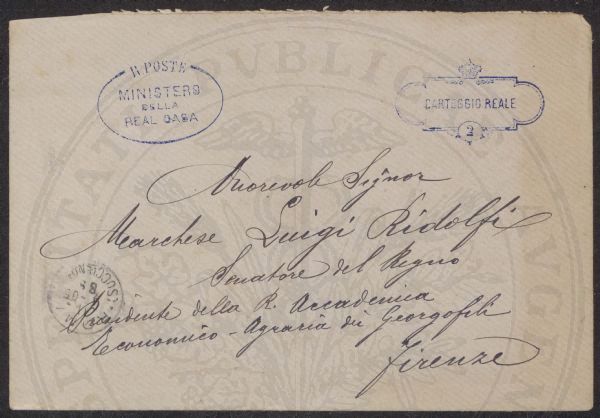 R. POSTE
MINISTERO
DELLA
REAL CASA
CARTEGGIO REALE
2
Onorevole Signor
Marchese Luigi Ridolfi
Senatore del Regno
Presidente della R. Accademia
Economico-Agraria dei Georgofili
Firenze